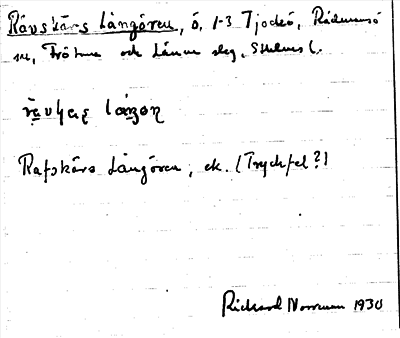 Rävskärs Långören, ö, 1-3 Tjockö, Rådmansö
sn, Frötuna och Länna slg, Sthlms l.
Rafskärs Långören, ek. (Tryckfel?)
Richard Norrman 1930